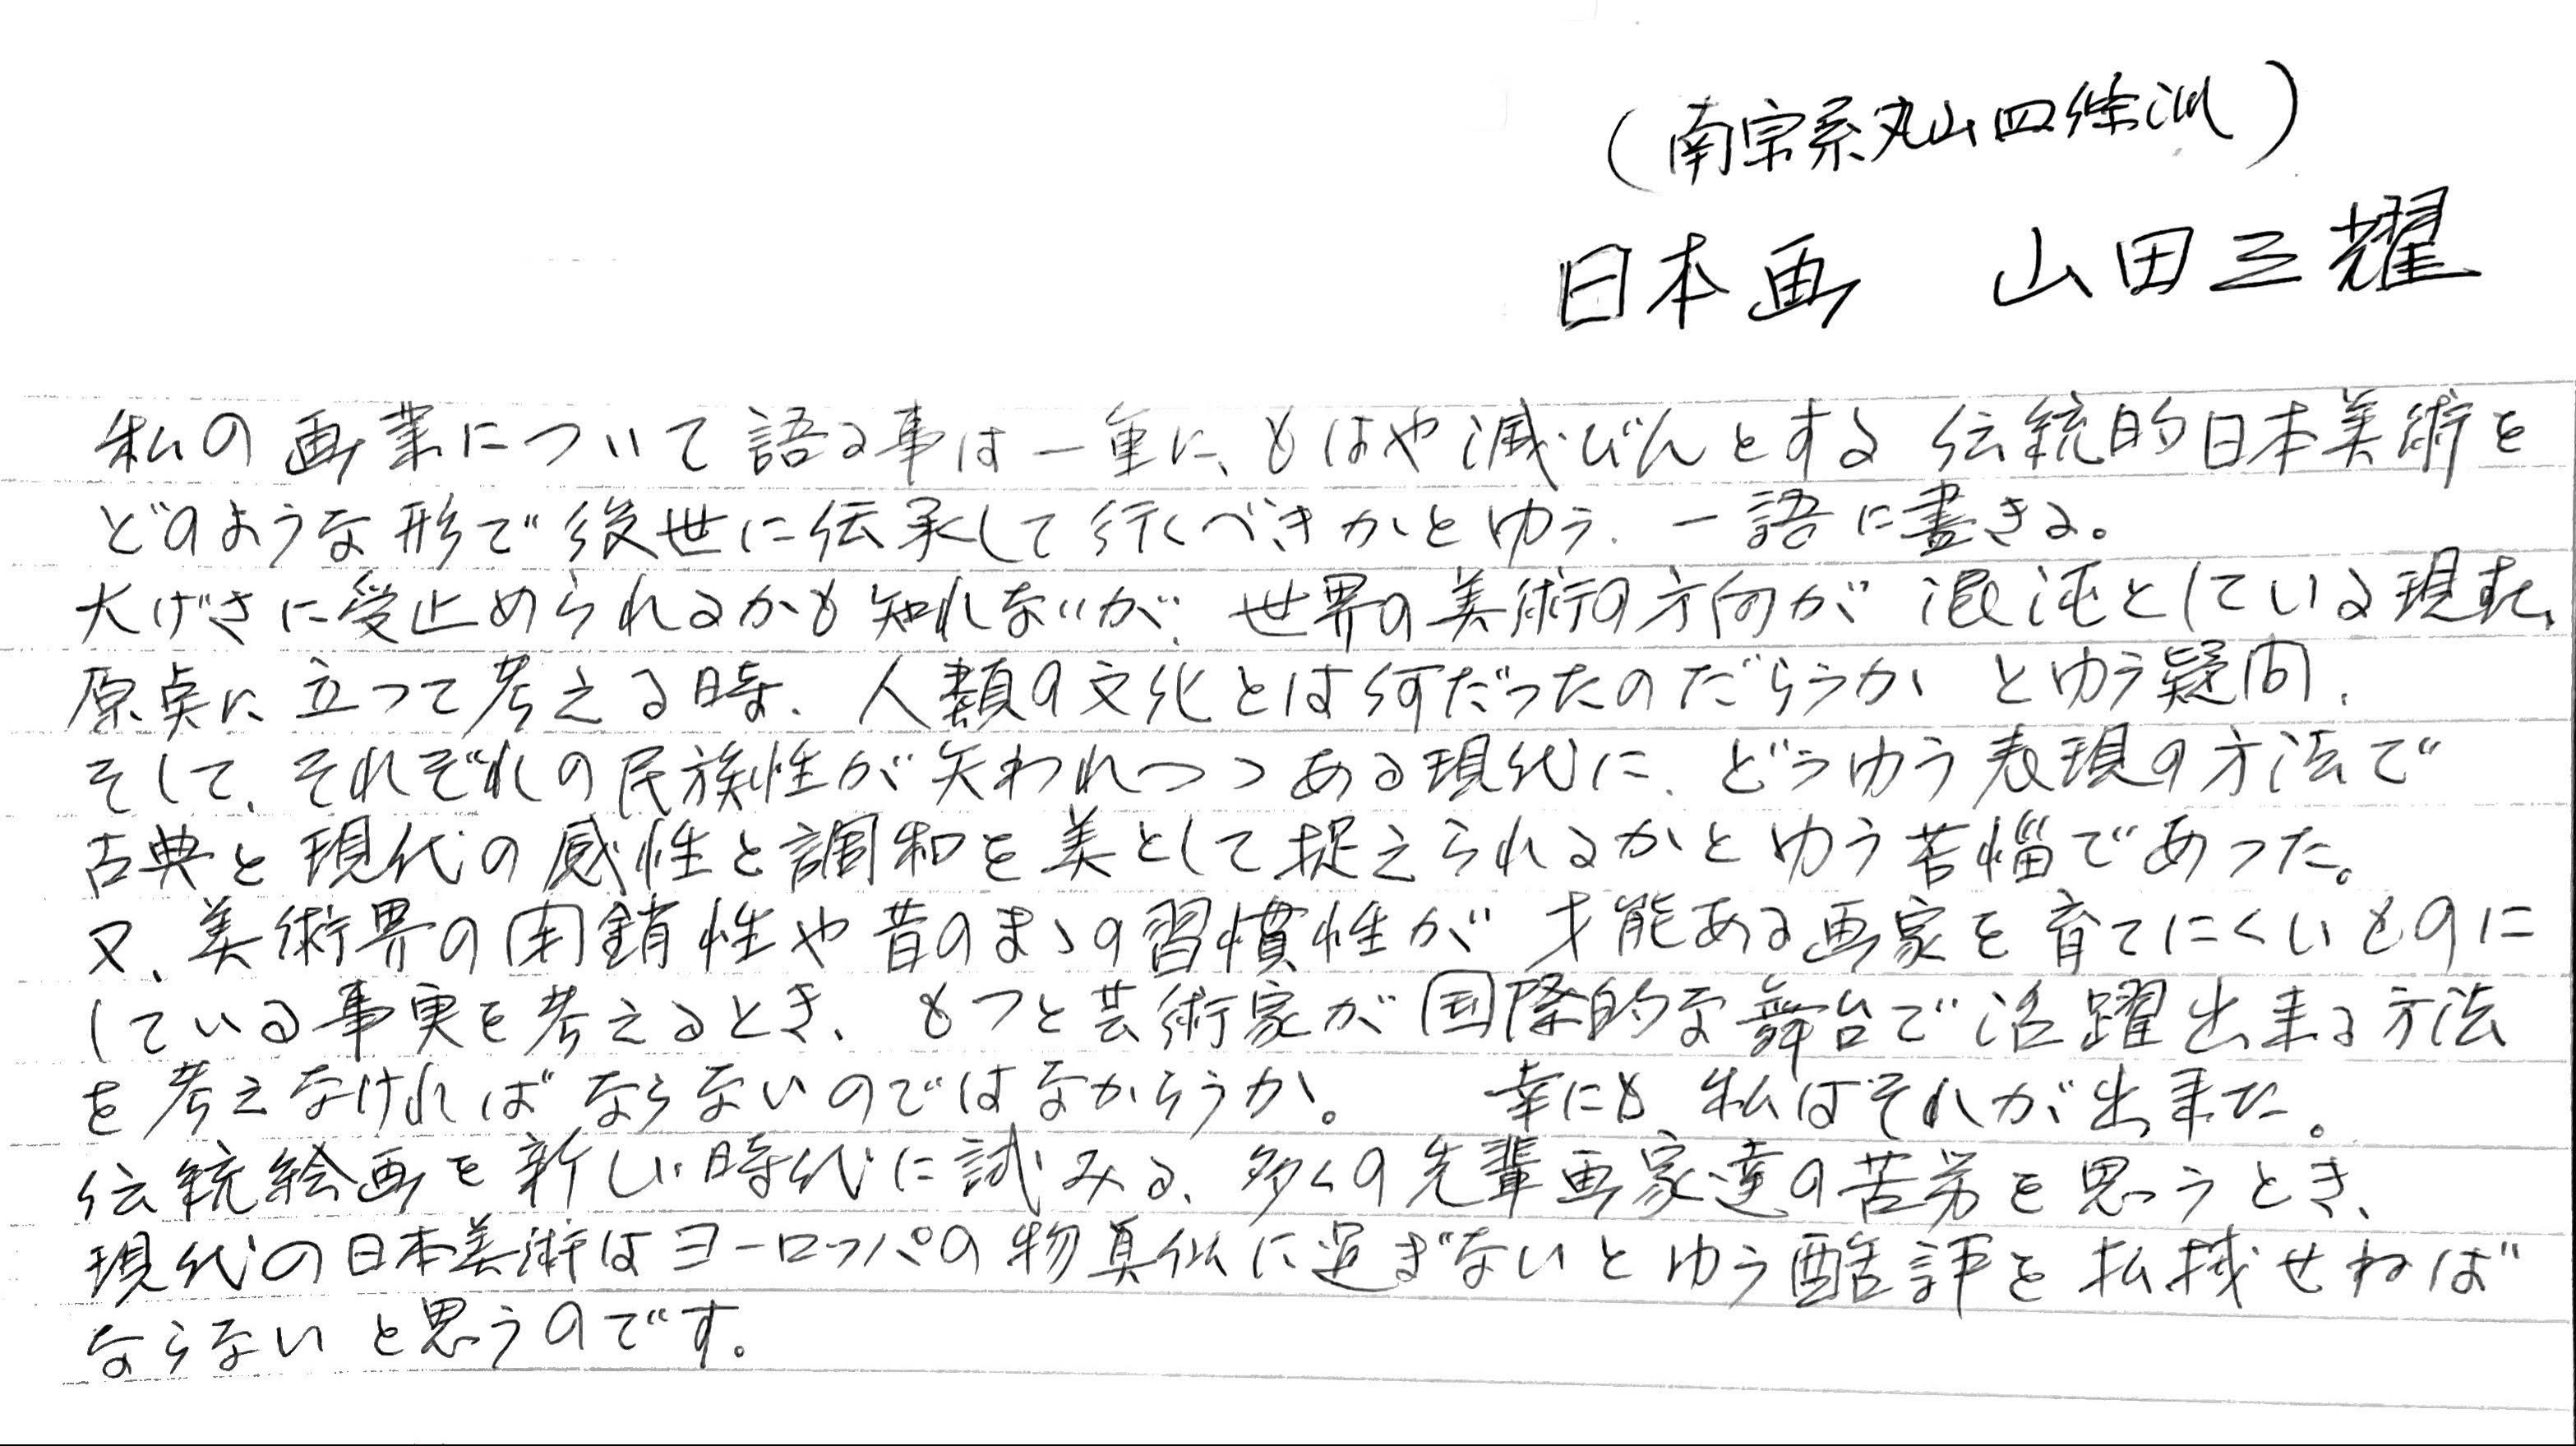 (南宗系丸山四條派)
日本画 山田玉耀
私の画業について語る事は一重に、もはや滅びんとする伝統的日本美術を
どのような形で後世に伝承して行くべきかとゆう、一語に書きる。
大げさに受止められるかも知れないが、世界の美術の方向が混沌としている現在、
原点に立って考える時、人類の文化とは何だったのだらうか とゆう疑問、
そして、それぞれの民族性が失われつつある現代に、どうゆう表現の方法で
古典と現代の感性と調和を美として捉えられるかとゆう苦悩であった。
又、美術界の閉鎖性や昔のまゝの習慣性が才能ある画家を育てにくいものに
している事実を考えるとき、もつと芸術家が国際的な舞台で活躍出来る方法
を考えなければならないのではなからうか。 幸にも私はそれが出来た。
伝統絵画を新しい時代に試みる、多くの先輩画家達の苦労を思うとき、
現代の日本美術はヨーロッパの物真似に過ぎないとゆう酷評を払拭せねば
ならないと思うのです。